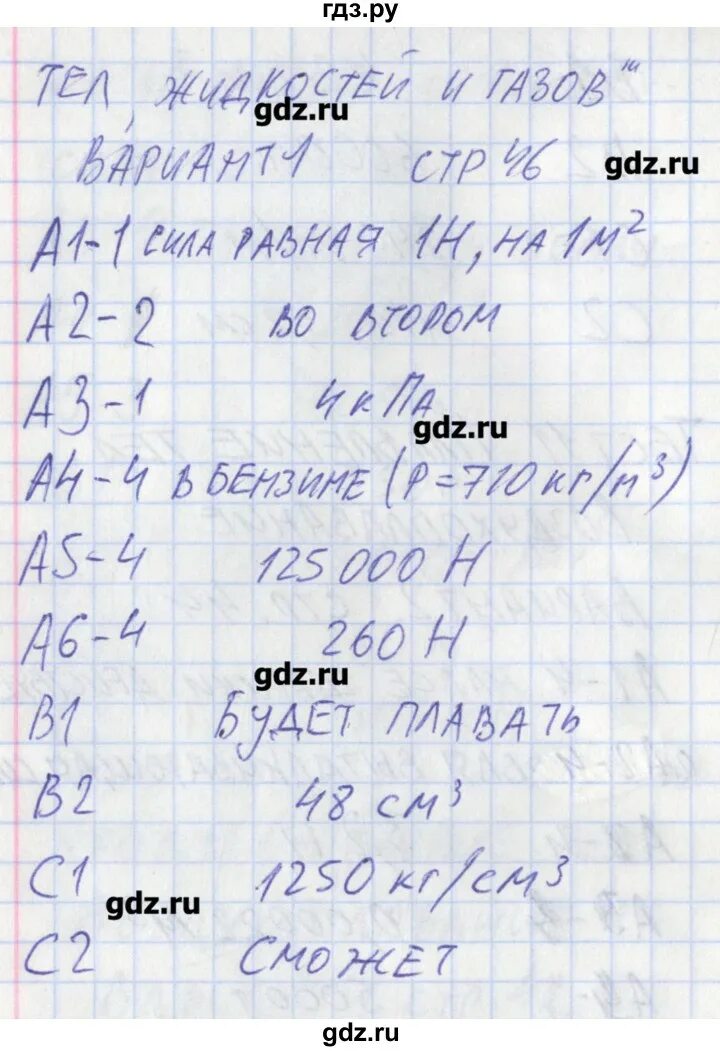 гдз.ру
ТЕЛ, ЖИДКОСТЕЙ И ГАЗОВ"
gdz.ru
ВАРИАНТ 1 СТР 46
gdz.ru
А1-1 СИЛА РАВНАЯ 1Н, НА 1м²
А2-2 ВО ВТОРОМ
А3-1 4кПа
gdz.ru
А4-4 В БЕНЗИНЕ (Р=710кг/м³)
А5-4 125000 Н
А6-4 260 Н
gdz.ru
В1 БУДЕТ ПЛАВАТЬ
В2 48 см³
С1 1250 кг/см³
gdz.ru
С2 СМОЖЕТ
gdz.ru